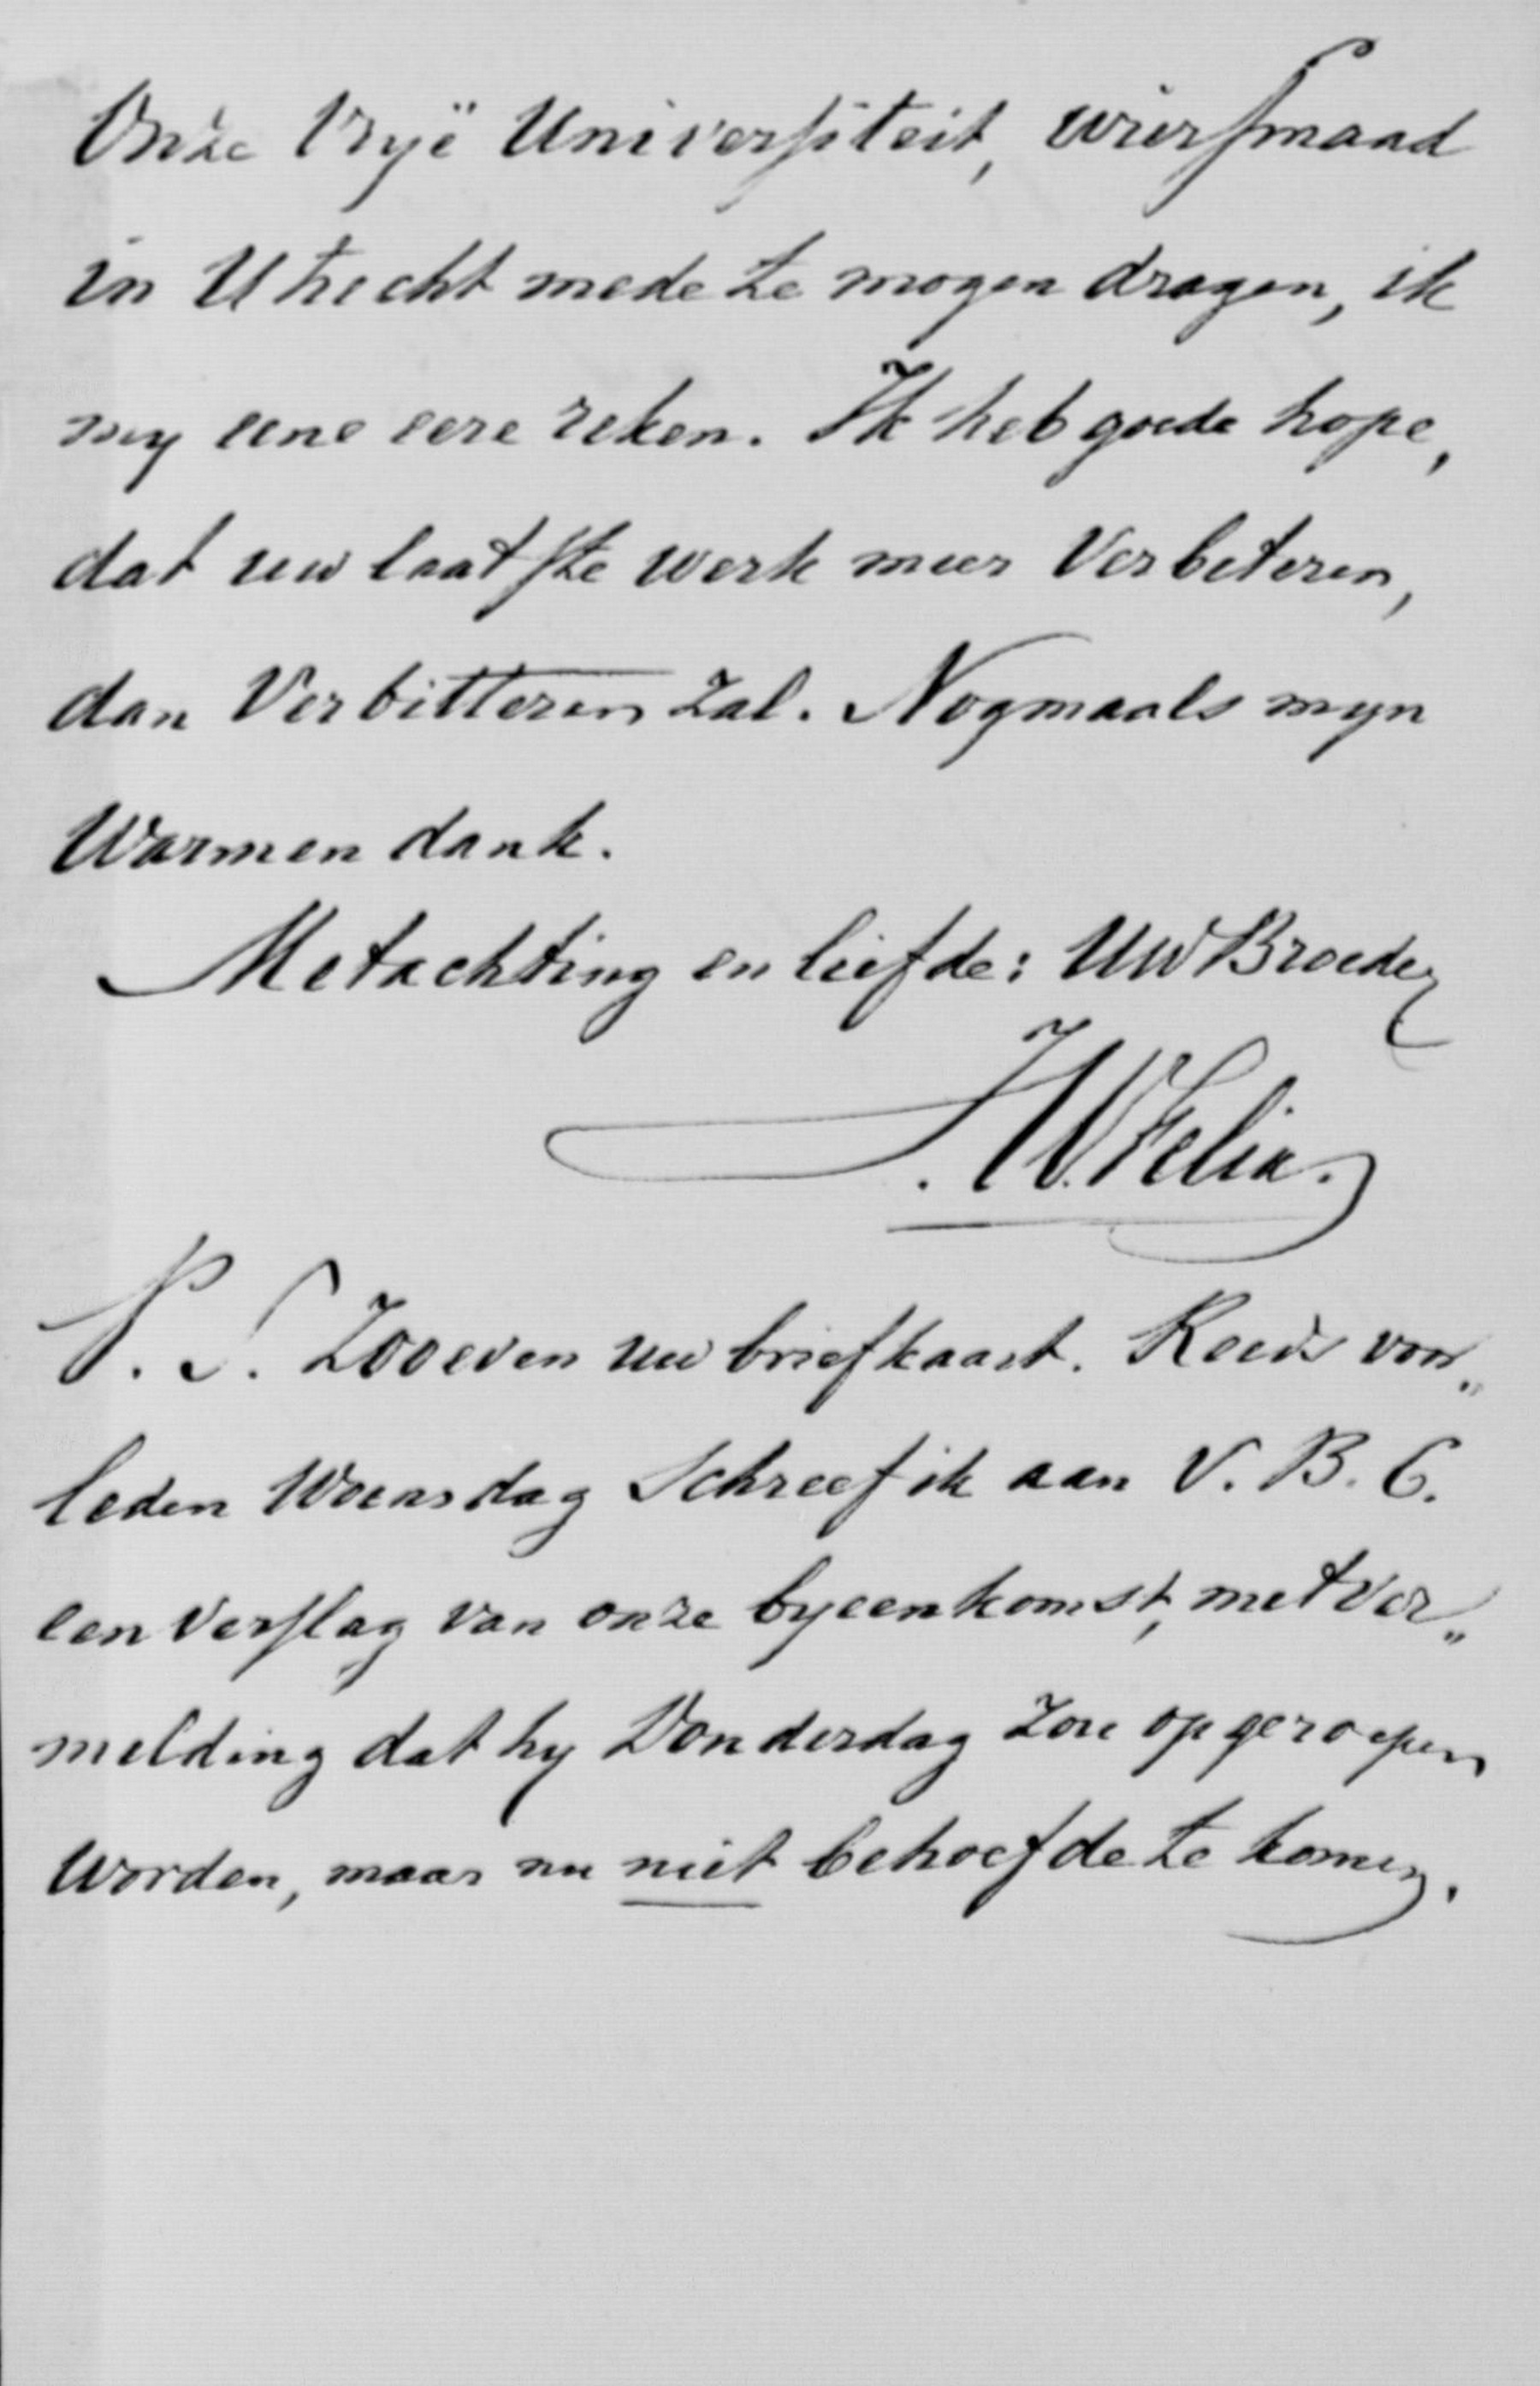 Onze Vrye Universiteit, wier smaad
in Utrecht mede te mogen dragen, ik
my eene eere reken. Ik heb goede hope,
dat uw laatste werk meer Verbeteren,
dan Verbitteren zal. Nogmaals myn
Warmen dank.
Met achting en liefde: UW Broeder
J. W. Felix.
P. S. Zooeven uw briefkaart. Reeds voor„
leden Woensdag Schreef ik aan V. B. C.
een Verslag van onze byeenkomst, met ver„
melding dat hy Donderdag zou opgeroepen
worden, maar nu niet behoefde te komen.